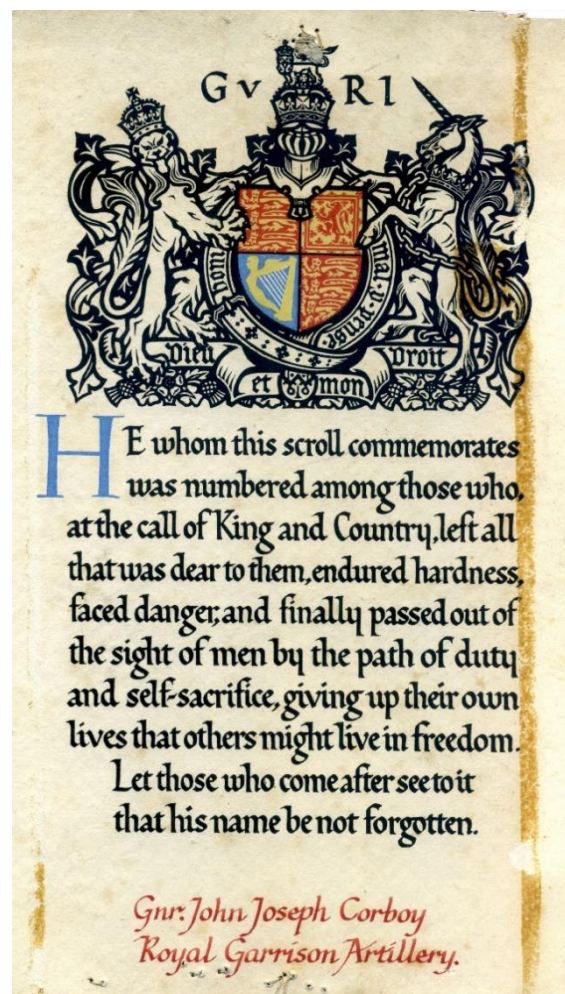 G V R I
honi
mal·y·pense
Dieu
Droit
et mon
HE whom this scroll commemorates
was numbered among those who,
at the call of King and Country, left all
that was dear to them, endured hardness,
faced danger, and finally passed out of
the sight of men by the path of duty
and self-sacrifice, giving up their own
lives that others might live in freedom.
Let those who come after see to it
that his name be not forgotten.
Gnr. John Joseph Corboy
Royal Garrison Artillery.